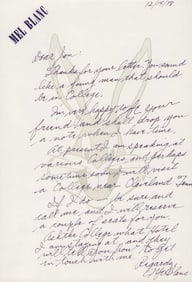 MEL BLANC
12/15/79
Dear Jon:
Thanks for your letter. You sound
like a young man that should
be in College.
I'm very happy to be your
friend, and shall drop you
a note when I have time.
At present I am speaking at
various Colleges and perhaps
sometime soon will visit
a College near Cleveland Tenn
If I do be sure and
call me, and I will reserve
a couple of seats for you.
Ask the College what Hotel
I am staying at and they
will tell you how to get
in touch with me.
Regards,
Mel Blanc